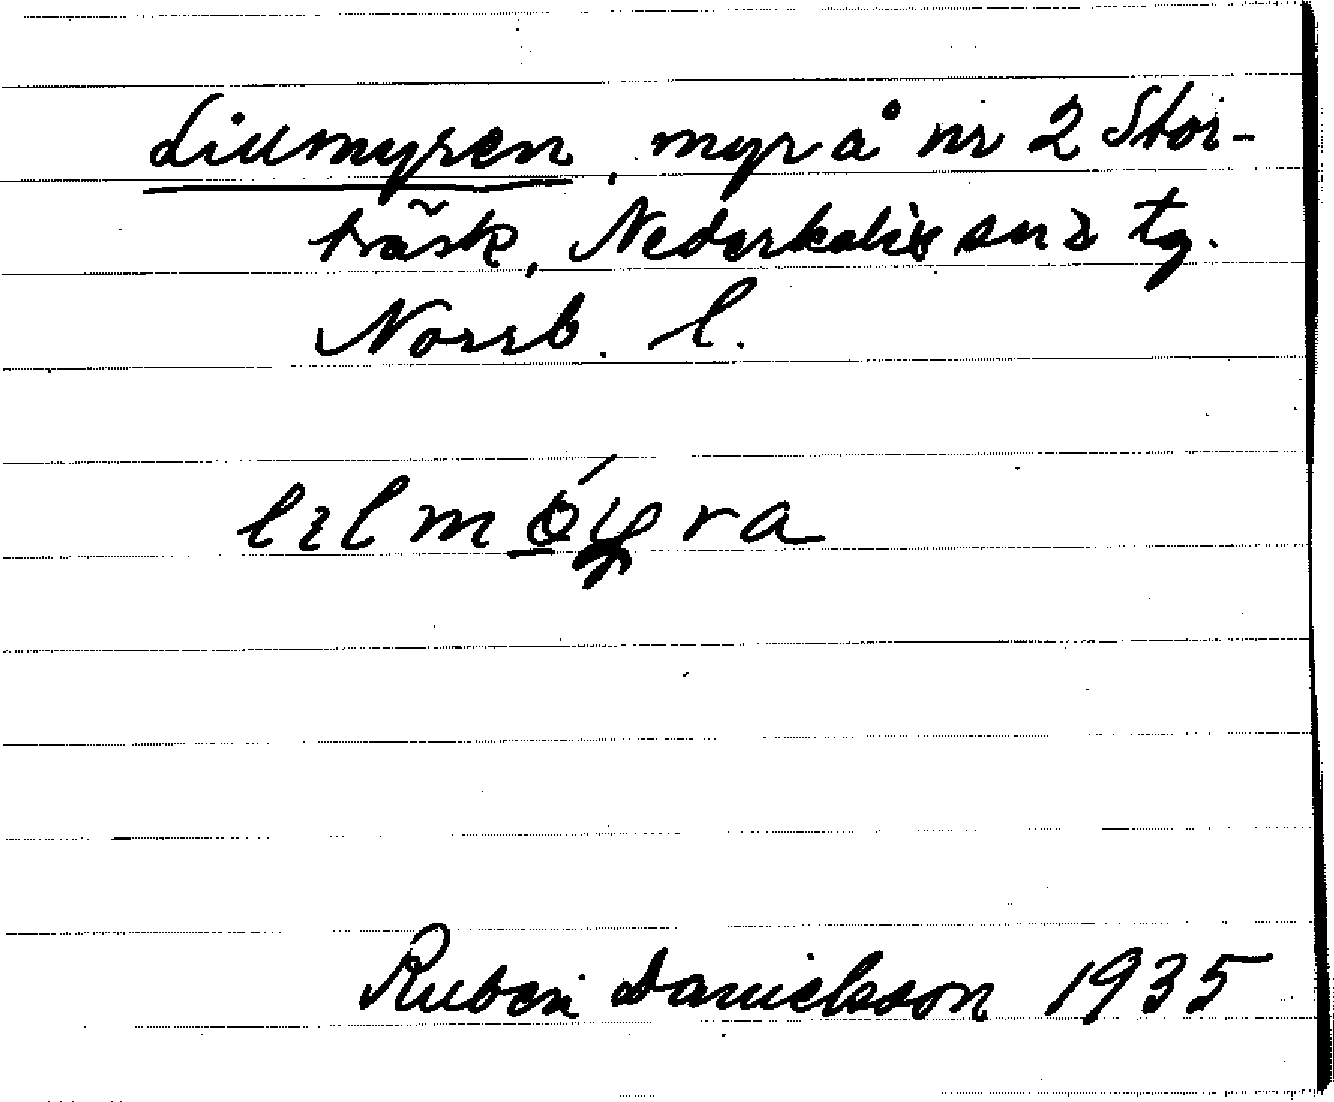 Lillmyren, myr å nr 2 Stor-
träsk, Nederkalix sn o tg.
Norrb. l.
lılmo̲ýra
Ruben Danielsson 1935